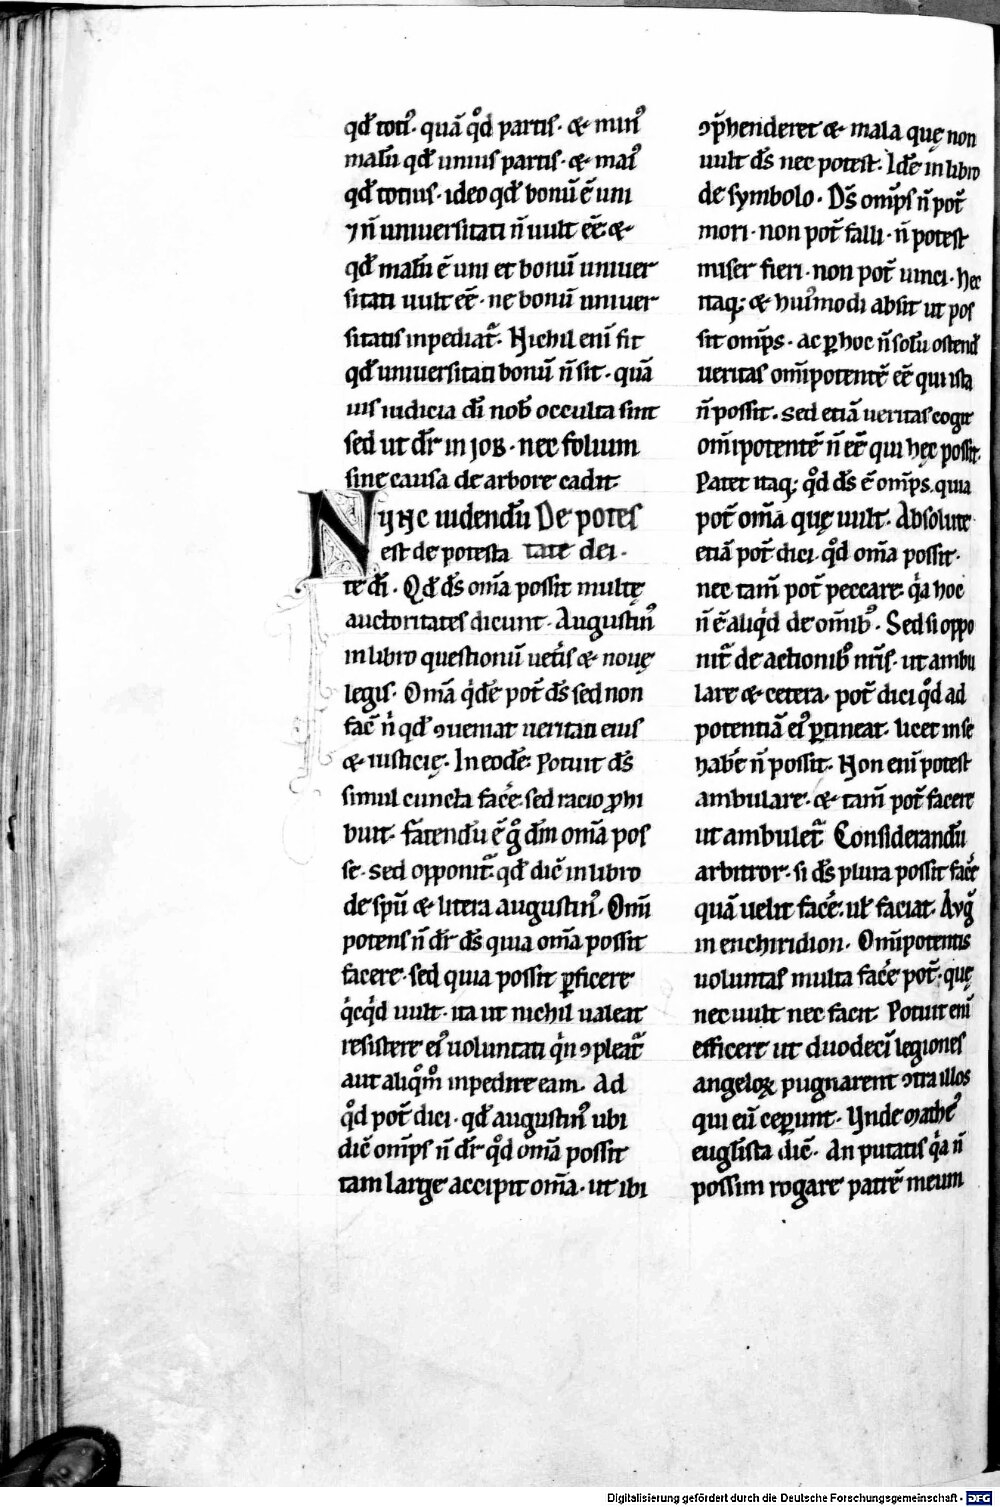 qđ toti᷒. quā qͦd partis. & min᷒
malū qđ unius partis. & mai᷒
qđ totius. ideo qđ bonū ē uni
⁊ n̄ uniuersitati n̄ uult eē &
qđ malū ē uni et bonū uniuer
sitati uult eē. ne bonū uniuer
sitatis inpediat᷑. Nichil enī fit
qđ uniuersitati bonū n̄ sit. quā
uis iudicia dī nob̄ occulta sint
sed ut dr̄ in JOB. nec folium
sine causa de arbore cadit.
NVNC uidendū De potes
est de potesta tate dei.
te dī. Qđ ds̄ om̄a possit multę
auctoritates dicunt. Augustin᷒
in libro questionū uet̄is & nouę
legis. Om̄a q̇dē pot̄ ds̄ sed non
fac̄ n̄ qđ ꝯueniat ueritati eius
& iusticię. In eodē. Potuit ds̄
simul cuncta fac̄e. sed racio ꝓhi
buit. fatendū ē g̊ dm̄ om̄a pos
se. sed opponit᷑ qđ dic̄ in libro
de spū & litera augustin᷒. Om̄i
potens n̄ dr̄ ds̄ quia om̄a possit
facere. sed quia possit ꝑficere
q̇cq̇d uult. ita ut nichil ualeat
resistere ei᷒ uoluntati q̇n ꝯpleat᷑
aut aliq̊m̊ inpedire eam. Ad
qͦd pot̄ dici. qđ augustin᷒ ubi
dic̄ om̄ps n̄ dr̄ qͦd om̄a possit
tam large accipit om̄a. ut ibi
ꝯp̄henderet & mala quę non
uult ds̄ nec potest. Idē in libro
de symbolo. Ds̄ om̄ps n̄ pot̄
mori. non pot̄ falli. n̄ potest
miser fieri. non pot̄ uinci. hec
itaq; & hui᷒modi absit ut pos
sit om̄ps. ac ꝑ hoc n̄ solū ostend̄
ueritas om̄ipotentē eē qui ista
n̄ possit. sed etiā ueritas cogit
om̄ipotentē n̄ eē qui hęc possit.
Patet itaq; qͦd ds̄ ē om̄ps. quia
pot̄ om̄a quę uult. Absolute
etiā pot̄ dici. qͦd om̄a possit.
nec tam̄ pot̄ peccare. q̇a hoc
n̄ ē aliq̇d de om̄ib᷒. Sed si oppo
nit᷑ de actionib᷒ nr̄is. ut ambu
lare & cetera. pot̄ dici qͦd ad
potentiā ei᷒ ꝑtineat. licet in se
habe᷑ n̄ possit. Non enī potest
ambulare. & tam̄ pot̄ facere
ut ambulet᷑. Considerandū
arbitror. si ds̄ plura possit fac̄e
quā uelit fac̄e. uł faciat. Avg᷒
in enchiridion. Om̄ipotentis
uoluntas multa fac̄e pot̄. quę
nec uult nec facit. Potuit enī
efficere ut duodecī legiones
angeloꝝ pugnarent ꝯtra illos
qui eū ceperunt. Vnde mathe᷒
euglista dic̄. An putatis q̇a n̄
possim rogare patrē meum
Digitalisierung gefördert durch die Deutsche Forschungsgemeinschaft - DFG